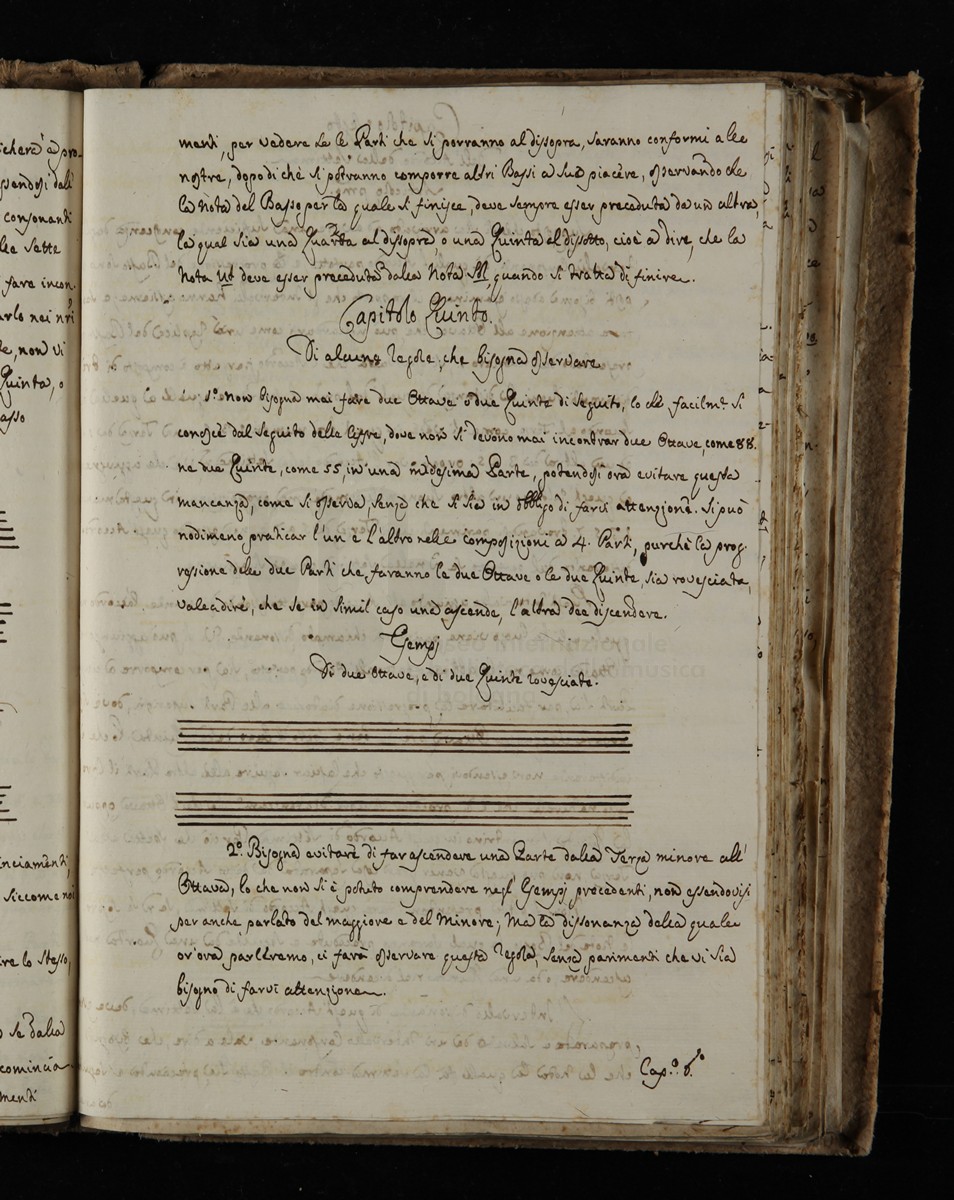 menti, per vedere se le Parti che si porranno al dissopra, saranno conformi alle
nostre, dopo di che si potranno comporre altri Bassi a suo piacere, osservando che
la nota del Basso per la quale si finisce, deve sempre esser preceduta da un altra,
la qual sia una Quarta al dissopra, o una Quinta al dissotto, cioè a dire, che la
Nota Ut deve esser preceduta dalla Nota Sol, quando si tratta di finire.
Capitolo Quinto.
Di alcune regole, che bisogna osservare
1.º non bisogna mai fare due Ottave o due Quinte di seguito, lo che facilm.te si
conosce dal seguito delle Cifre, dove non si devono mai incontrar due Ottave, come 88.
ne due Quinte, come 55, in una medesima Parte, potendosi ora evitare questa
mancanza, come si osserva, senza che si sia in obbligo di farvi attenzione. Si può
nodimeno praticar l'un e l'altro nelle composizioni a 4. Parti, purchè la prog-
ressione delle due Parti che faranno le due Ottave o le due Quinte, sia rovesciata,
valeadire, che se in simil caso una ascende, l'altra dee discendere.
Esempj
Di due Ottave, e di due Quinte rovesciate.
2.º Bisogna evitare di far ascendere una Parte dalla Terza minore all'
Ottava, lo che non si è potuto comprendere negl' Esempj precedenti, non essendovisi
per anche parlato del maggiore e del Minore; Ma la dissonanza della quale
or'ora parlaremo, ci farà osservare questa regola, senza parimenti che vi sia
bisogno di farvi attenzione.
Cap.º 6.º
Museo internazionale
musica